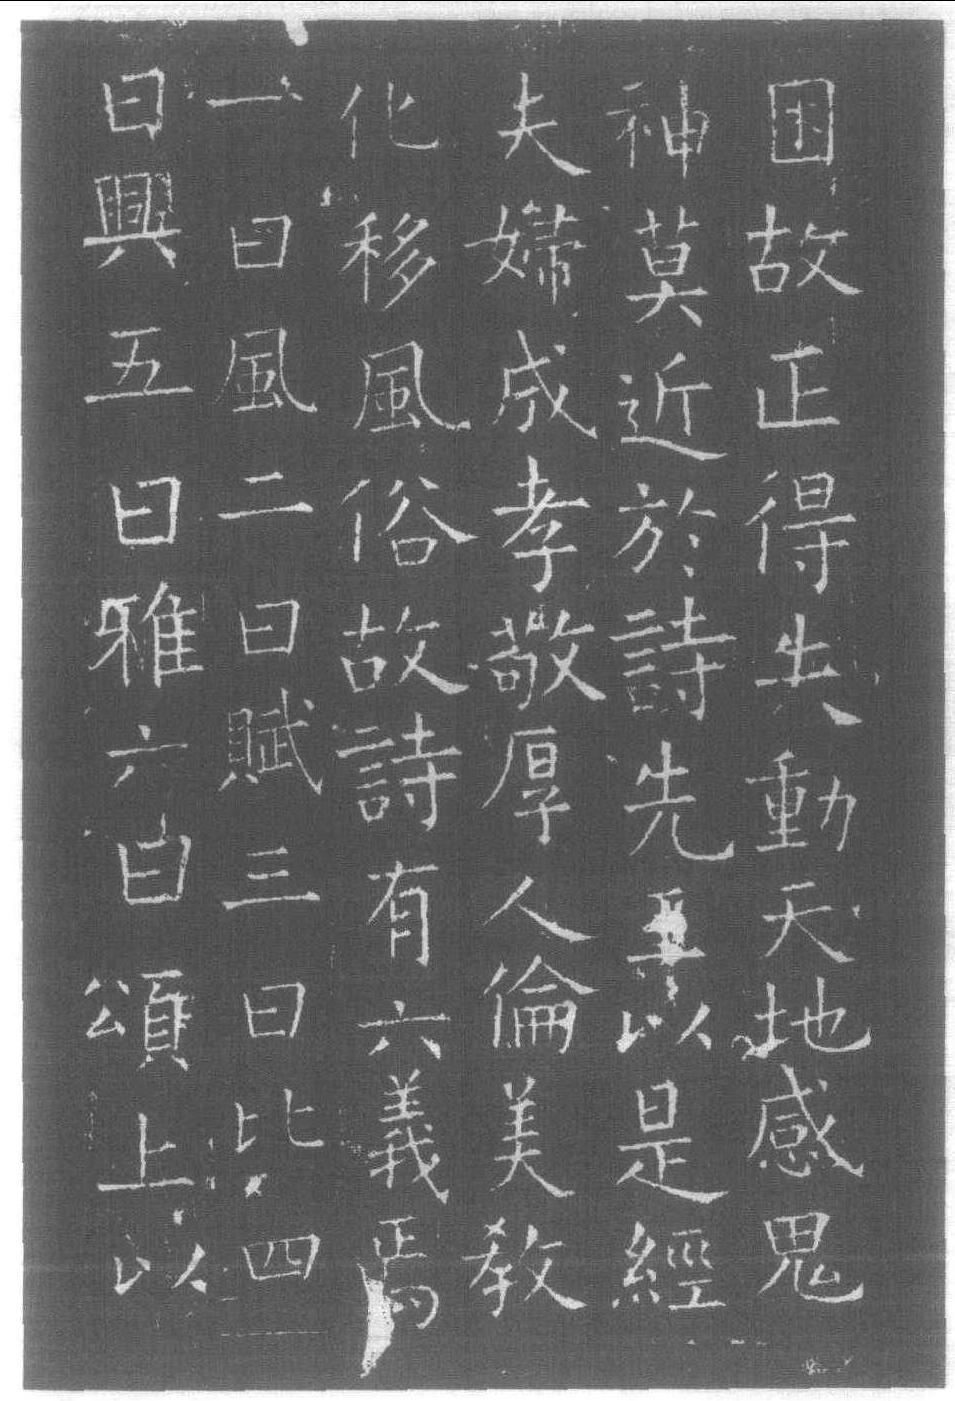 困故正得失動天地感鬼
神莫近於詩先王以是經
夫婦成孝敬厚人倫美教
化移風俗故詩有六義焉
一曰風二曰賦三曰比四
曰興五曰雅六曰頌上以